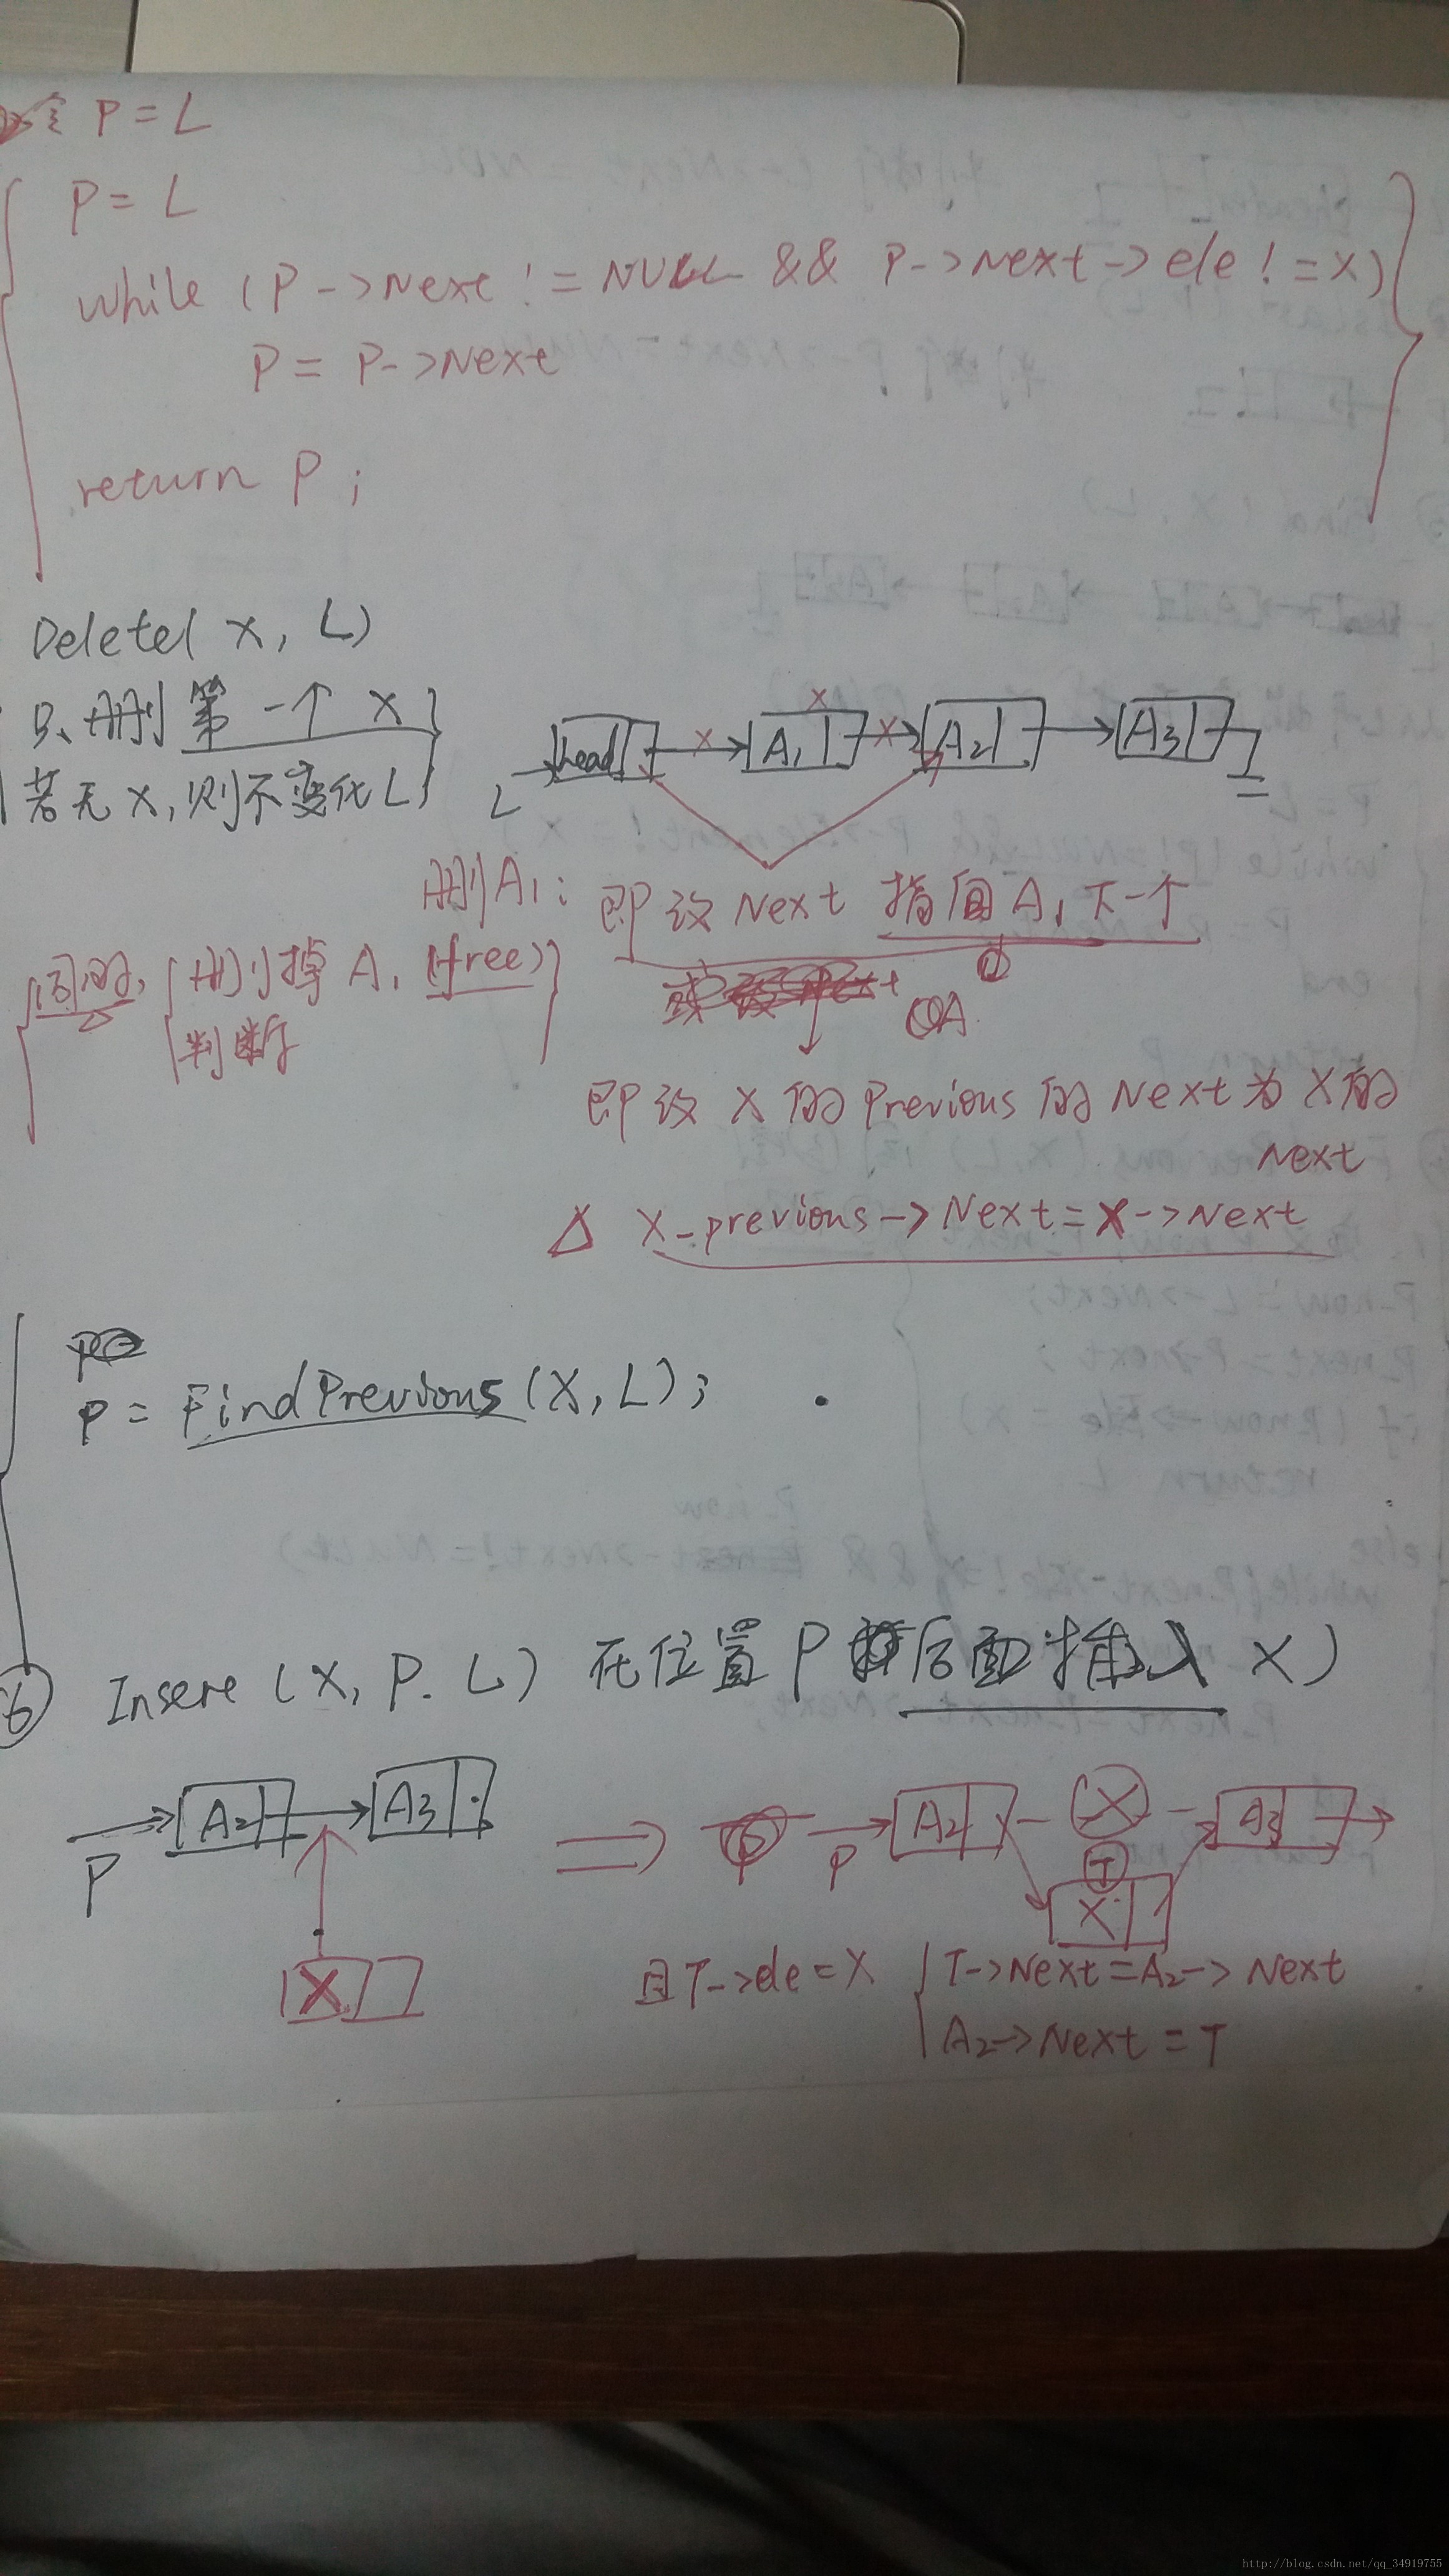 P = L
P = L
while (P->Next != NULL && P->Next->ele != X)
P = P->Next
return P;
Delete( X, L)
只删第一个 X
若无X,则不变化L
L
head
A1
A2
A3
X
X
X
删A1: 即改 Next 指向A1下一个
同时, 删掉A1 (free)
判断
即改 X 的 Previous 的 Next 为 X 的
Next
△ X_previous->Next = X->Next
P = FindPrevious(X, L);
6 Insere (X, P. L) 在位置P后面插入X)
P
A2
A3
X
P
A2
X
T
X
A3
且T->ele = X
T->Next = A2->Next
A2->Next = T
http://blog.csdn.net/qq_34919755